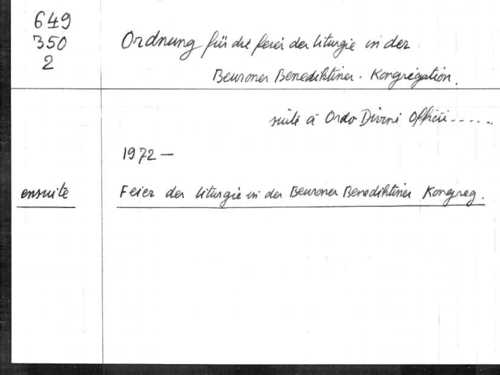 649
350
2
Ordnung für die Feier der Liturgie in der
Beuroner Benediktiner - Kongregation.
suite à Ordo Divini Officii ......
1972 —
ensuite Feier der Liturgie in der Beuroner Benediktiner Kongreg.